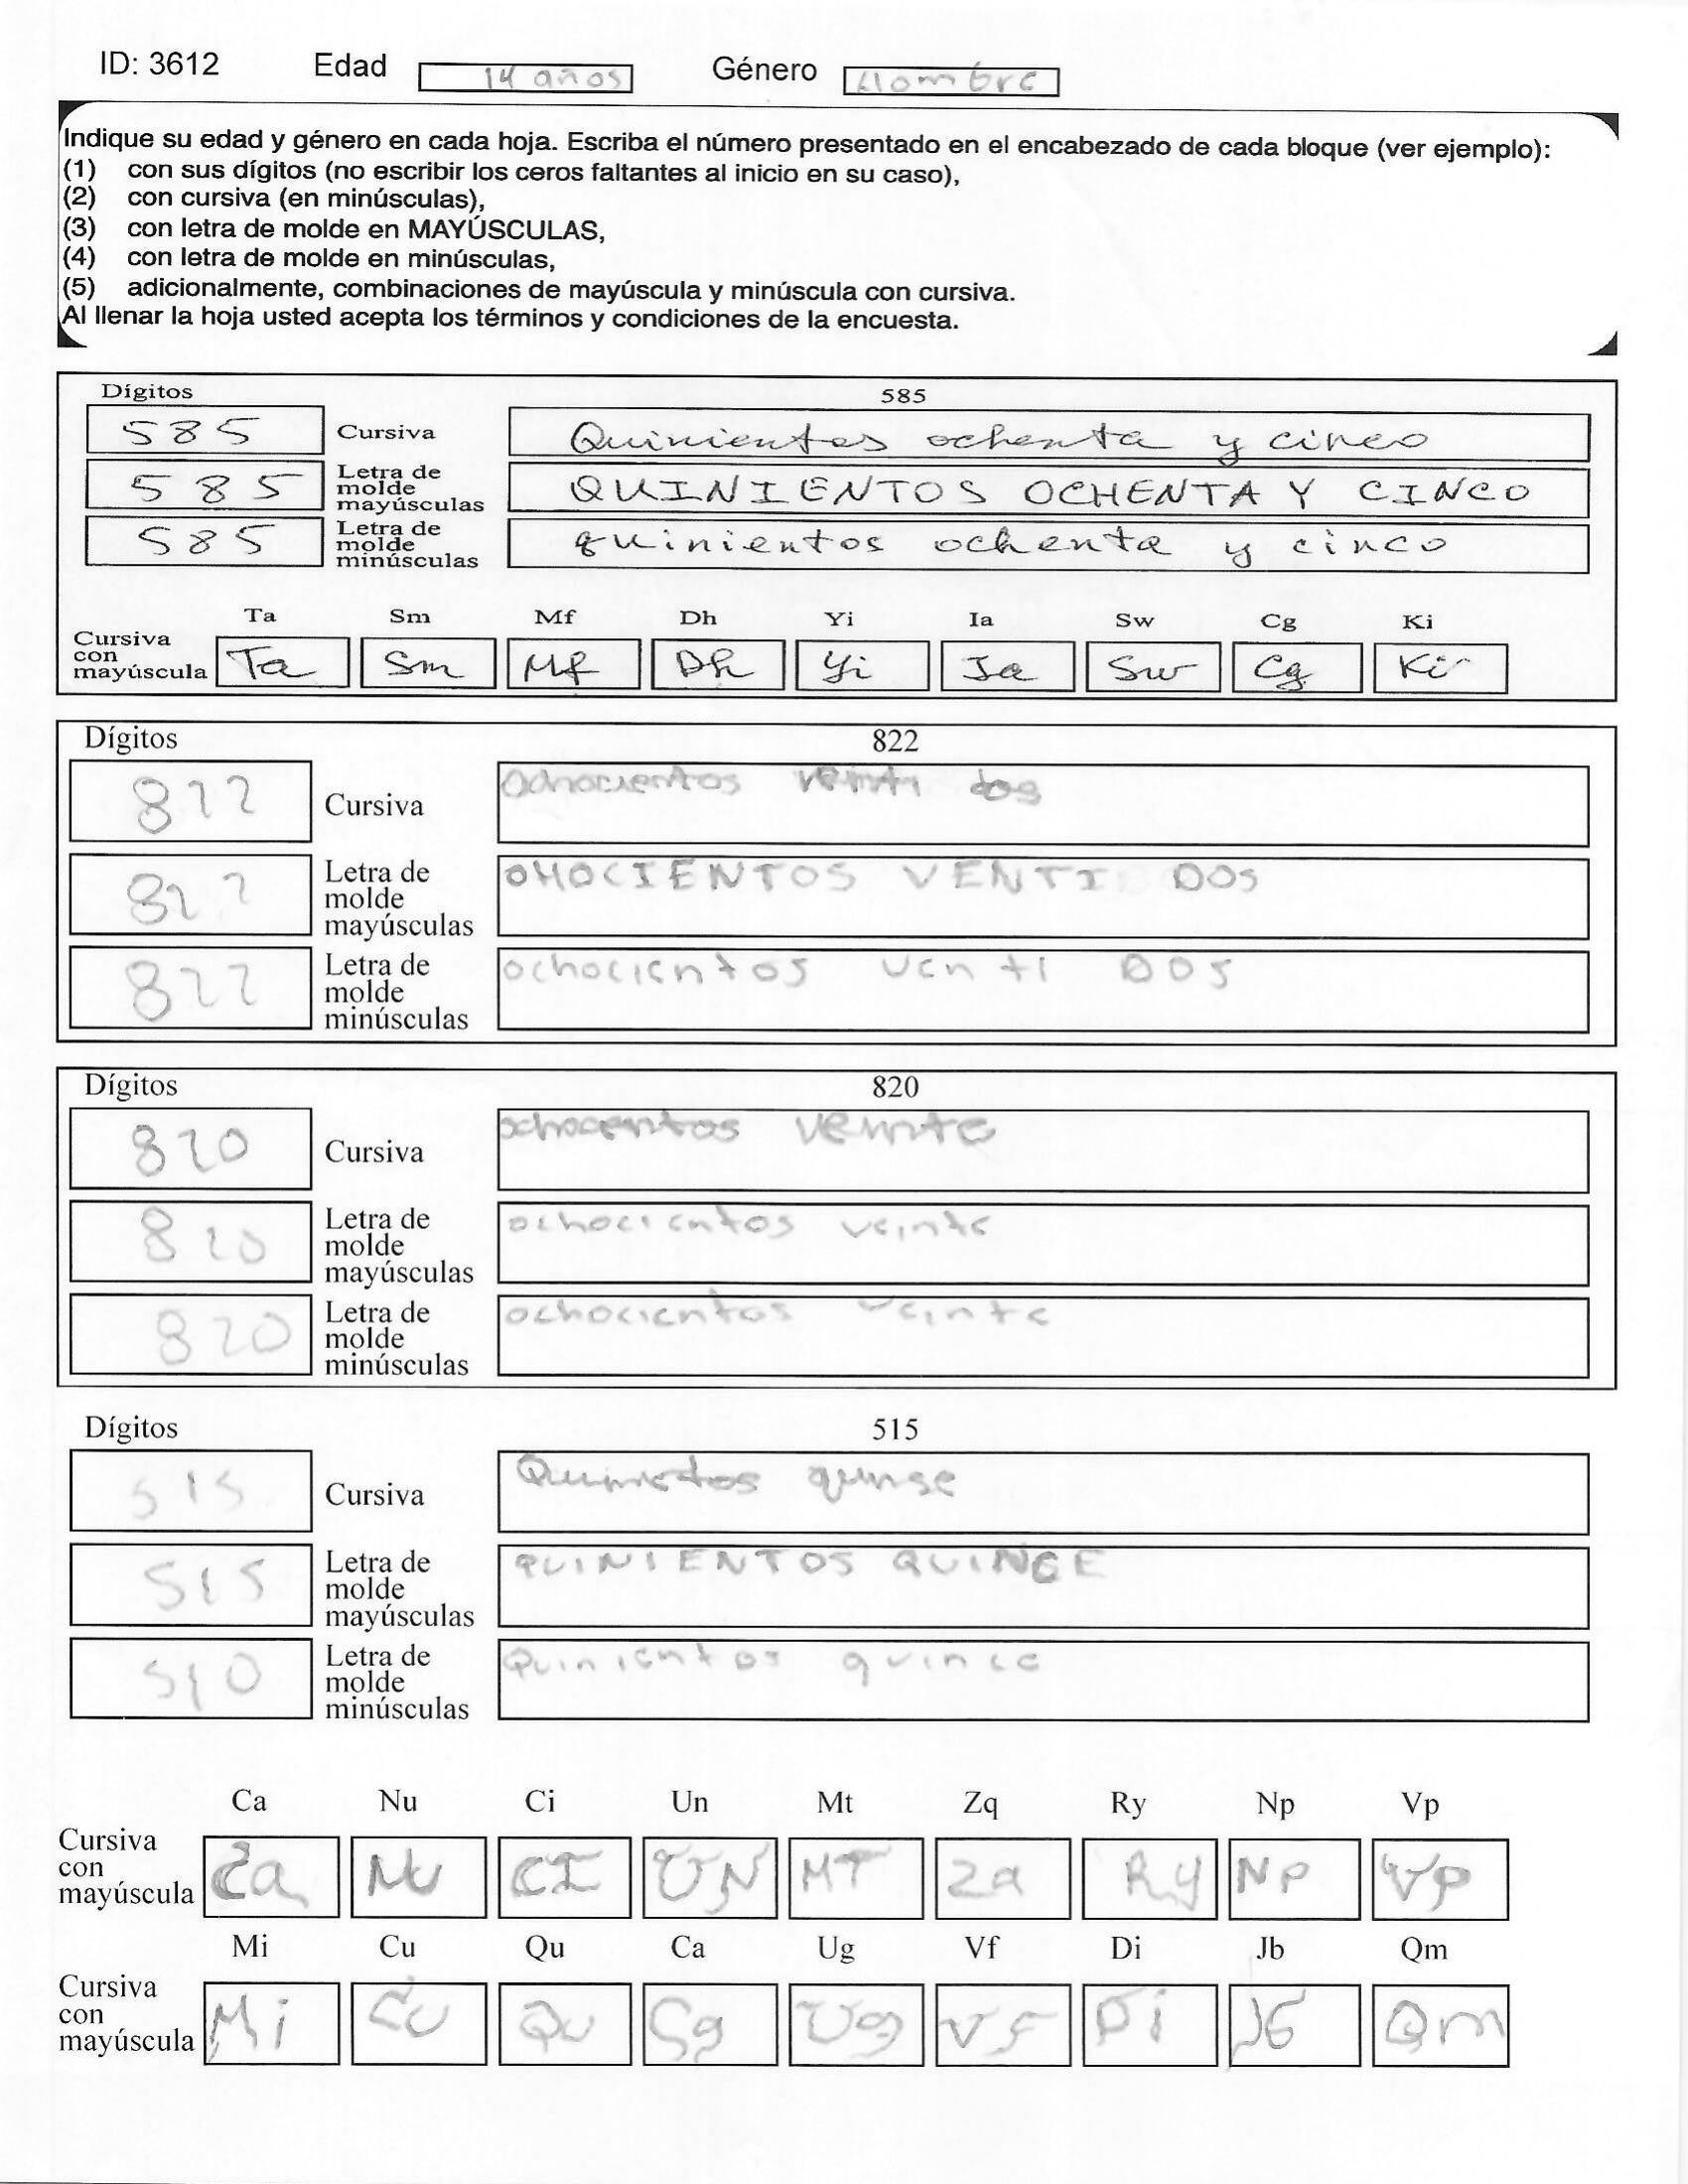 ID: 3612 Edad 14 años Género Hombre
Indique su edad y género en cada hoja. Escriba el número presentado en el encabezado de cada bloque (ver ejemplo):
(1) con sus dígitos (no escribir los ceros faltantes al inicio en su caso),
(2) con cursiva (en minúsculas),
(3) con letra de molde en MAYÚSCULAS,
(4) con letra de molde en minúsculas,
(5) adicionalmente, combinaciones de mayúscula y minúscula con cursiva.
Al llenar la hoja usted acepta los términos y condiciones de la encuesta.
Dígitos 585
585 Cursiva Quinientos ochenta y cinco
585 Letra de molde mayúsculas QUINIENTOS OCHENTA Y CINCO
585 Letra de molde minúsculas quinientos ochenta y cinco
Ta Sm Mf Dh Yi Ia Sw Cg Ki
Cursiva con mayúscula Ta Sm Mf Dh Yi Ia Sw Cg Ki
Dígitos 822
822 Cursiva Ochocientos veinti dos
822 Letra de molde mayúsculas OHOCIENTOS VENTI DOS
822 Letra de molde minúsculas ochocientos venti DOS
Dígitos 820
820 Cursiva ochocentos veinte
820 Letra de molde mayúsculas ochocientos veinte
820 Letra de molde minúsculas ochocientos veinte
Dígitos 515
515 Cursiva Quinietos quinse
515 Letra de molde mayúsculas QUINIENTOS QUINCE
510 Letra de molde minúsculas Quinientos quince
Ca Nu Ci Un Mt Zq Ry Np Vp
Cursiva con mayúscula Ca Nu CI UN MT Za Ry Np Vp
Mi Cu Qu Ca Ug Vf Di Jb Qm
Cursiva con mayúscula Mi Cu Qu Cg Ug VF Di Jb Qm